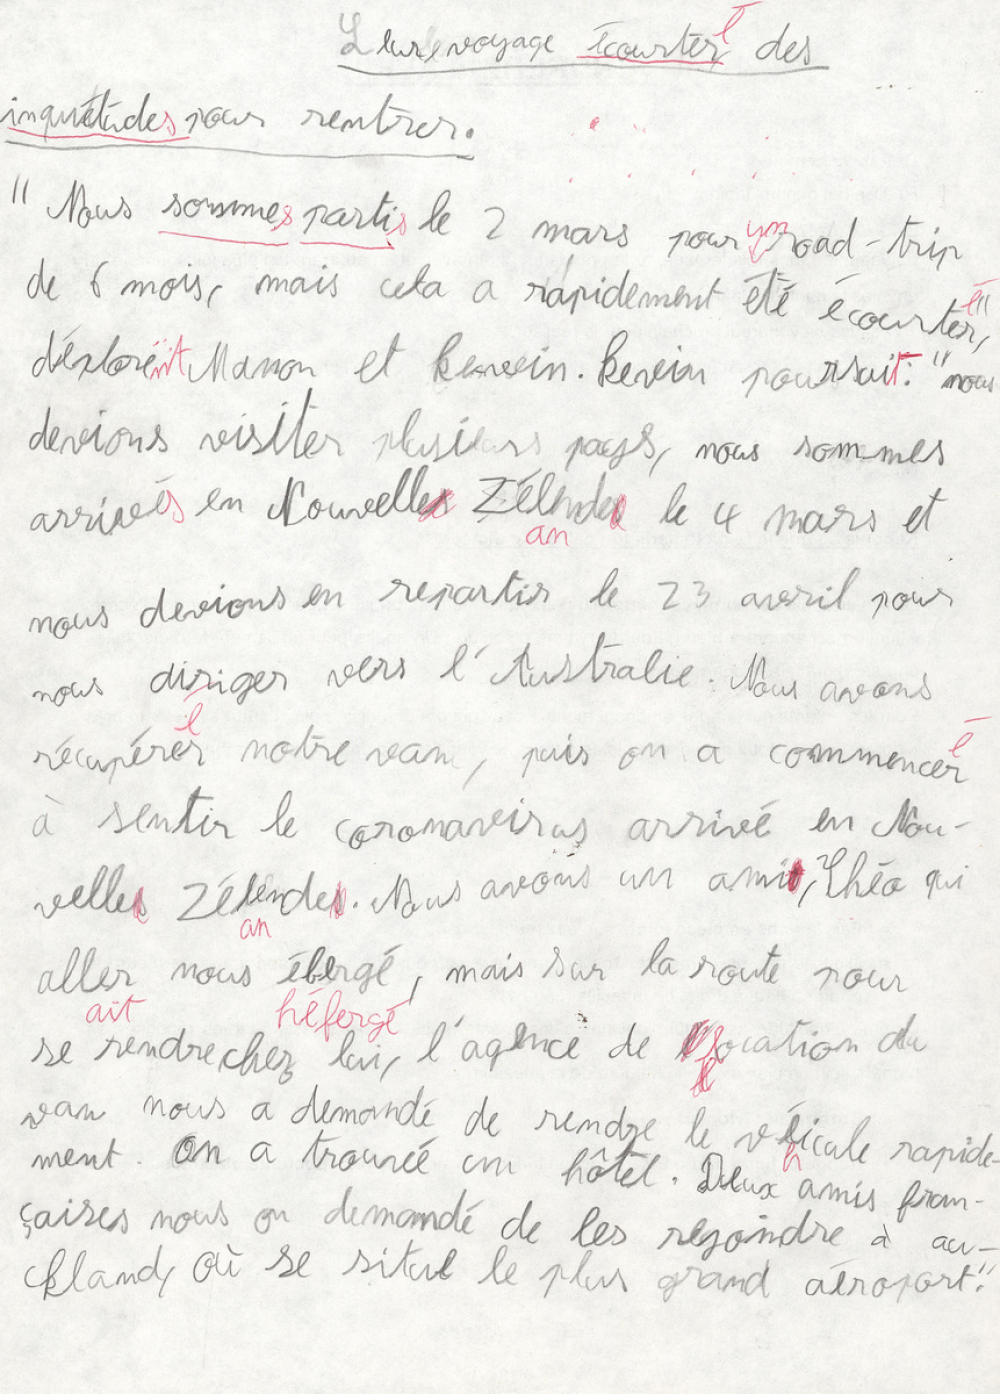 Leur voyage écourter é des
inquiétudes pour rentrer.
" Nous sommes partis le 2 mars pour un road-trip
de 6 mois, mais cela a rapidement été écourter, é "
déxlorent Manon et Kewein. Kevein poursuit : " nous
devions visiter plusieurs pays, nous sommes
arrivés en Nouvelle Zélende le 4 mars et
an
nous devions en repartir le 23 avril pour
nous diriger vers l'Australie. Nous avons
é
récupérer notre van, puis on a commencer é
à sentir le coronavirus arrivé en Nou-
velle Zélende. Nous avons un ami, Théo qui
an
aller nous ébergé, mais sur la route pour
ait héfergé
se rendre chez lui, l'agence de location du
l
van nous a demandé de rendre le véicule rapide-
h
ment. On a trouvée un hôtel. Deux amis fran-
çaises nous on demandé de les rejoindre à au-
ckland, où se situe le plus grand aéroport."